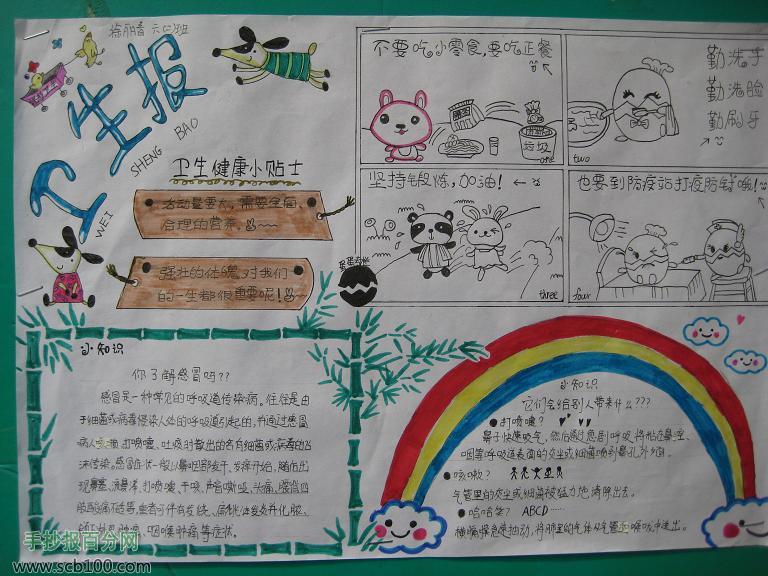 徐丽音 六(二)班
卫生报
WEI SHENG BAO
卫生健康小贴士
活动量要大,需要全面、
合理的营养。
强壮的体魄,对我们
的一生都很重要呢!
不要吃小零食,要吃正餐
垃圾
one
勤洗手
勤洗脸
勤刷牙
two
坚持锻炼,加油!
three
也要到防疫站打疫防针哦!
four
小知识
你了解感冒吗??
感冒是一种常见的呼吸道传染病。往往是由
于细菌或病毒侵染人体的呼吸道引起的,并通过感冒
病人咳嗽、打喷嚏、吐痰时散出的含有细菌或病毒的飞
沫传染。感冒症状一般以鼻咽部发干、发痒开始,随后出
现鼻塞、流鼻涕、打喷嚏、干咳、声音嘶哑、头痛、腰背四
咽喉肿痛等症状。
小知识
它们会给别人带来什么???
打喷嚏?
鼻子快速吸气,然后通过急剧呼吸将粘在鼻腔、
咽等呼吸道表面的灰尘或细菌喷到鼻孔外面。
咳嗽?
气管里的灰尘或细菌被猛力地清除出去。
哈哈笑? ABCD……
横膈膜急速抽动,将肺里的气体从气管和喉咙中送出。
手抄报百分网
www.scb100.com